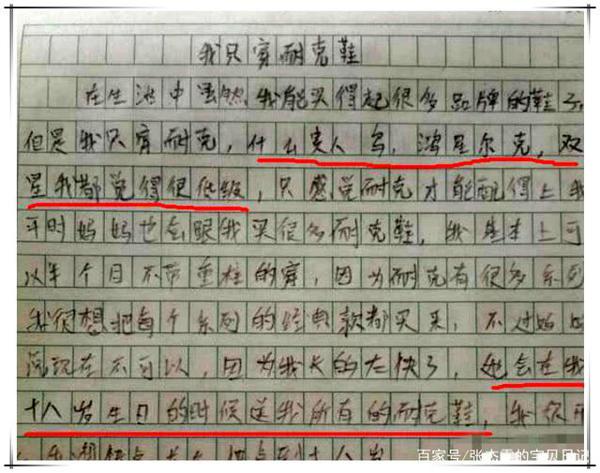 我只穿耐克鞋
在生活中虽然我能买得起很多品牌的鞋子
但是我只穿耐克，什么贵人鸟，鸿星尔克，双
星我都觉得很低级，只感觉耐克才能配得上我
平时妈妈也会跟我买很多耐克鞋，我基本上可
以半个月不带重样的穿，因为耐克有很多系列
我很想把每个系列的经典款都买来，不过妈妈
说现在不可以，因为我长的太快了，她会在我
十八岁生日的时候送我所有的耐克鞋，我很
百家号/张杰雷的宝贝日记